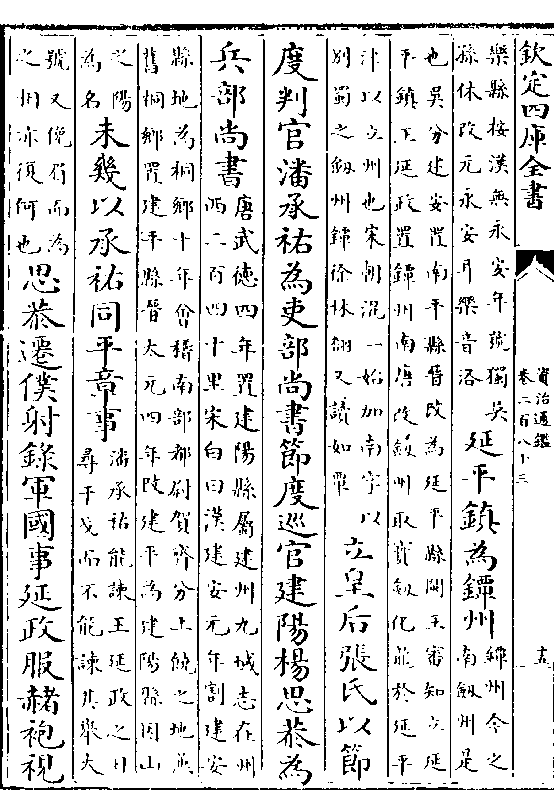 欽定四庫全書
資治通鑑
卷二百八十三
十五
樂縣按漢無永安年號獨吳
孫休改元永安耳樂音洛
延平鎮為鐔州
鐔州今之
南劔州是
也吳分建安置南平縣晉改為延平縣閩王審知立延
平鎮王延政置鐔州南唐改劔州取寳劔化龍於延平
津以立州也宋朝混一始加南字以
别蜀之劔州鐔徐林翻又讀如覃
立皇后張氏以節
度判官潘承祐為吏部尚書節度巡官建陽楊思恭為
兵部尚書
唐武德四年置建陽縣屬建州九域志在州
西二百四十里宋白曰漢建安元年割建安
縣地為桐鄉十年會稽南部都尉賀齊分上饒之地并
舊桐鄉置建平縣晉太元四年改建平為建陽縣因山
之陽
為名
未幾以承祐同平章事
潘承祐能諫王延政之日
尋干戈而不能諫其舉大
號又俛眉而為
之州亦復何也
思恭遷僕射錄軍國事延政服赭袍視